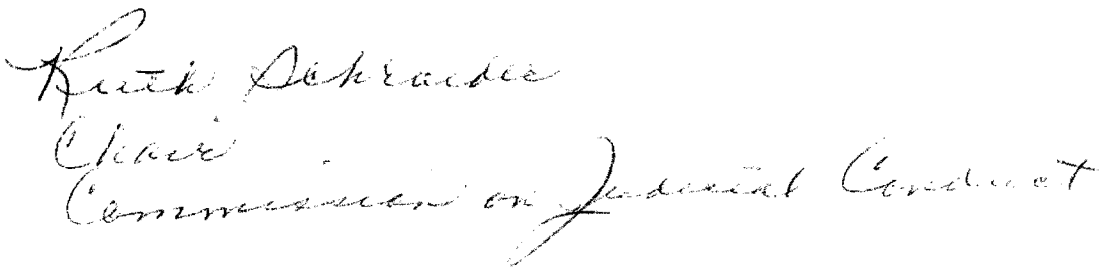 Ruth Schroeder
Chair
Commission on Judicial Conduct